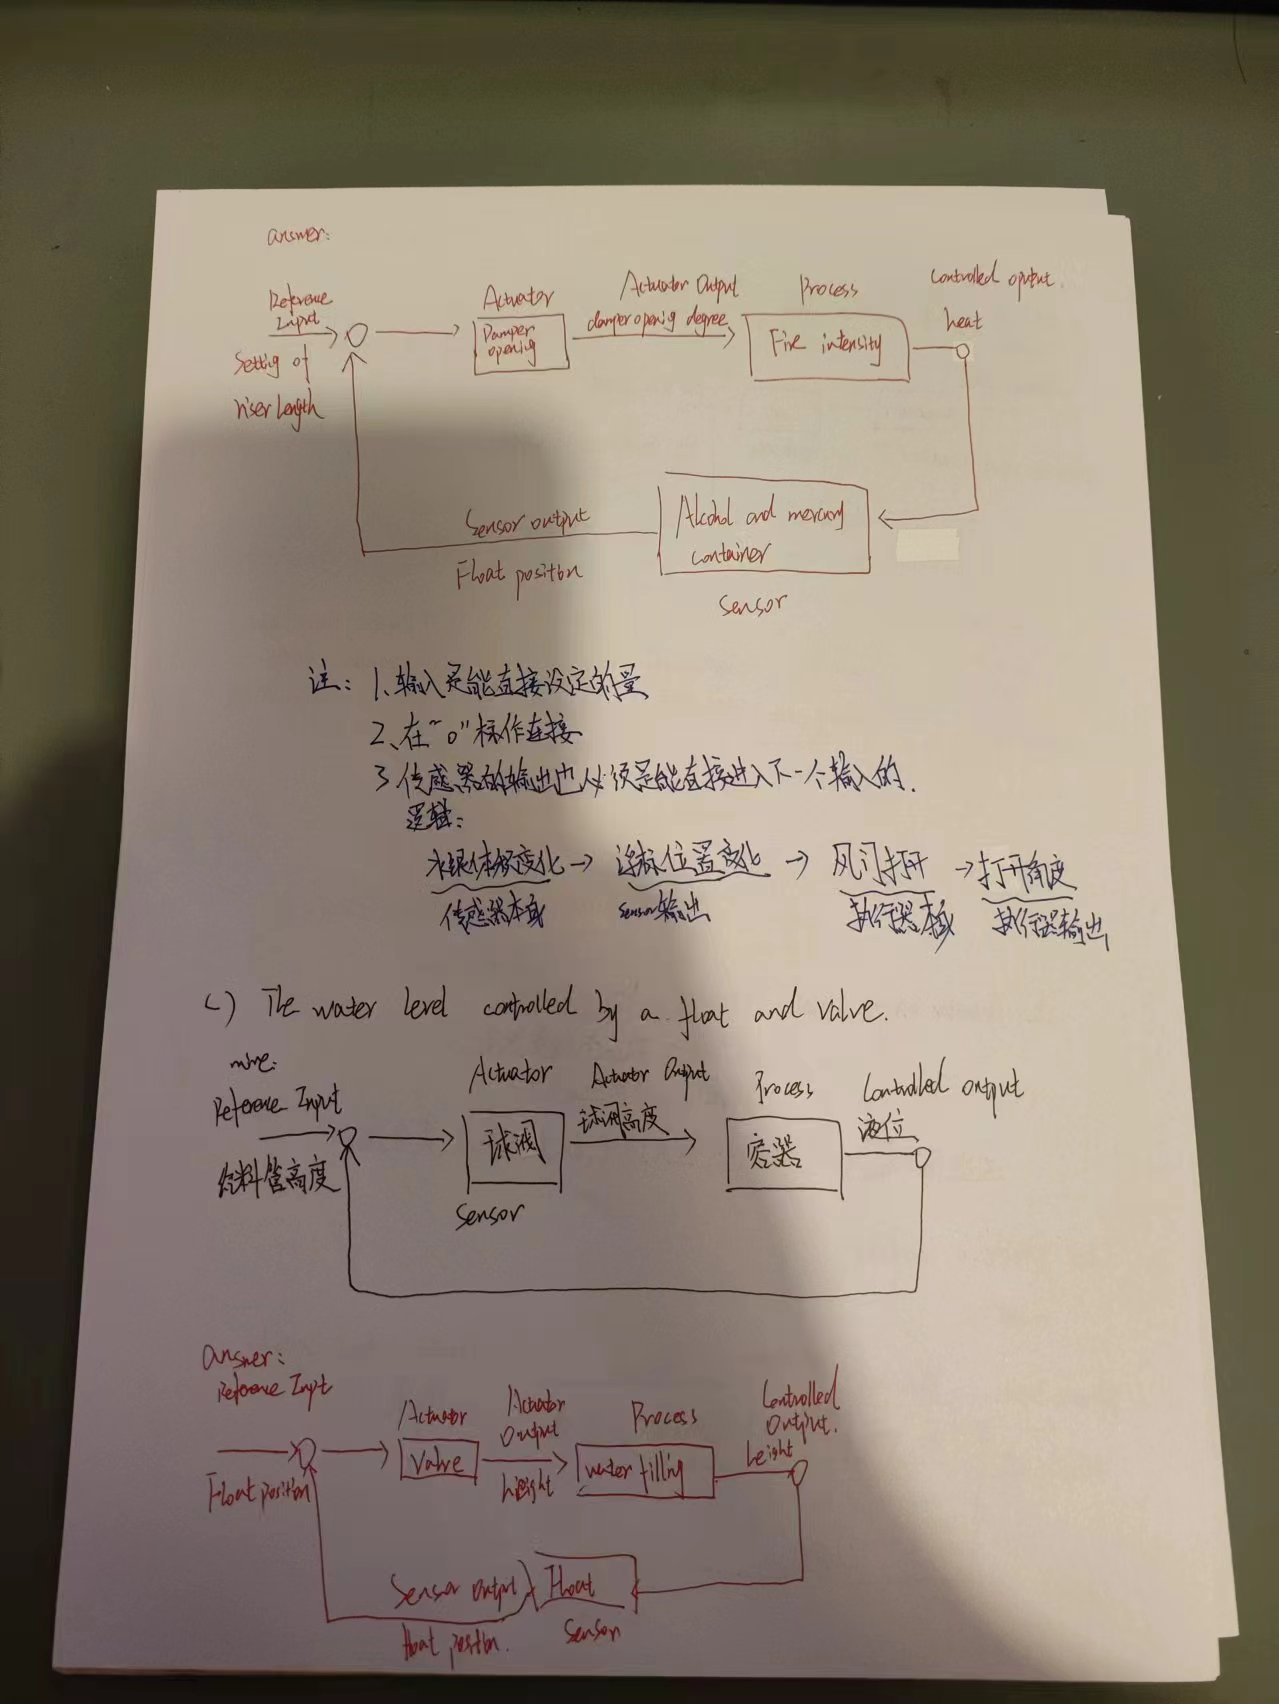 answer:
Reference
Input
Setting of
riser length
Actuator
Damper
opening
Actuator Output
damper openig degree
Process
Fire intensity
Controlled output
heat
Sensor output
Float position
Alcohol and mercury
container
Sensor
注: 1、输入是能直接设定的量
2、在“o”标作连接
3 传感器的输出也必须是能直接进入下一个输入的.
逻辑:
水银体积变化 → 浮标位置变化 → 风门打开 → 打开角度
传感器本身 sensor输出 执行器本身 执行器输出
c) The water level controlled by a float and valve.
mine:
Reference Input
给料管高度
Actuator
球阀
Sensor
Actuator Output
球阀高度
Process
容器
Controlled output
液位
answer:
Reference Inpt
Float position
Actuator
Valve
Actuator
Output
height
Process
water filling
Controlled
Output.
height
Sensor output
float position.
Float
Sensor